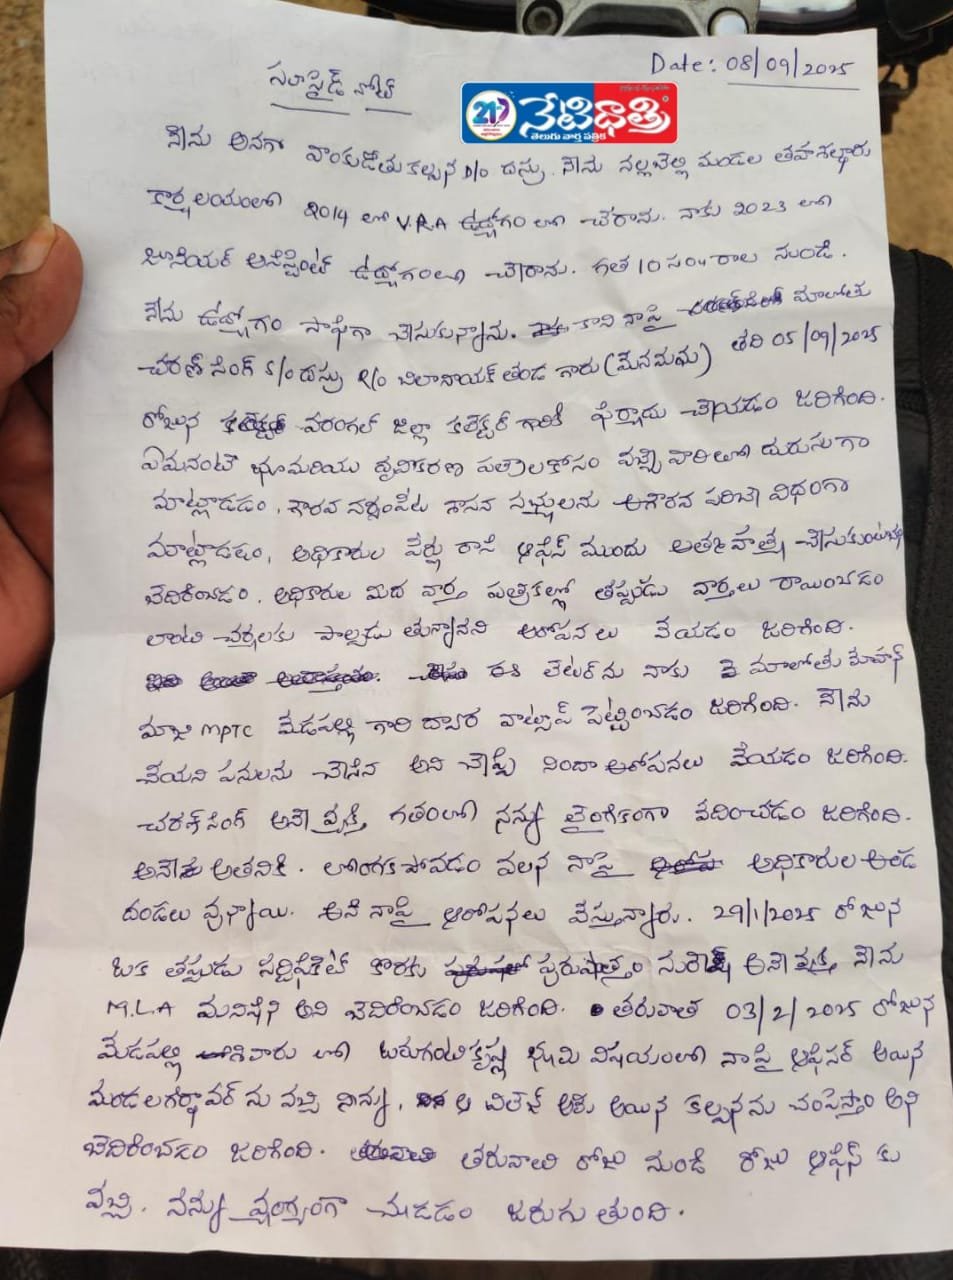 Date: 08/09/2025
సూసైడ్ నోట్
21
నేటిధాత్రి
తెలుగు వార్తా పత్రిక
నేను అనగా వాంకుడోతు కల్పన D/O దస్రు. నేను నల్లబెల్లి మండల తహశిల్దారు
కార్యలయంలో 2014 లో V.R.A ఉద్యోగం లో చేరాను. నాకు 2023 లో
జూనియర్ అసిస్టెంట్ ఉద్యోగంలో చేరాను. గత 10 సం॥రాల నుండి.
నేను ఉద్యోగం సాఫిగా చేసుకున్నాను. కాని నాపై మాలోతు
చరణ్ సింగ్ S/O దస్రు R/O బిలానాయక్ తండ గారు (మేనమామ) తేది 05/09/2025
రోజున వరంగల్ జిల్లా కలెక్టర్ గారికి ఫిర్యాదు చేయడం జరిగింది.
ఏమనంటే భూమరియు దృవికరణ పత్రాలకోసం వచ్చే వారితో దురుసుగా
మాట్లాడడం, గౌరవ నర్సంపేట శాసన సభ్యులను అగౌరవ పరిచే విధంగా
మాట్లాడడం, అధికారుల పేర్లు రాసి ఆఫీస్ ముందు ఆత్మహత్య చేసుకుంటానని
బెదిరించడం. అధికారుల మీద వార్త పత్రికల్లో తప్పుడు వార్తలు రాయించడం
లాంటి చర్యలకు పాల్పడు తున్నానని ఆరోపనలు చేయడం జరిగింది.
ఈ లెటర్ ను నాకు మాలోతు మోహన్
మాజి MPTC మేడపల్లి గారి ద్వార వాట్సాప్ పెట్టించడం జరిగింది. నేను
చేయని పనులను చేసిన అని చెప్పి నిందా ఆరోపనలు చేయడం జరిగింది.
చరణ్ సింగ్ అనే వ్యక్తి గతంలో నన్ను లైంగికంగా వేదించడం జరిగింది.
అనేను అతనికి. లొంగక పోవడం వలన నాపై అధికారుల అండ
దండలు వున్నాయి. అని నాపై ఆరోపనలు చేస్తున్నారు. 29/1/2025 రోజున
ఒక తప్పుడు సర్టిఫికెట్ కొరకు పురుషోత్తం సురేష్ అనే వ్యక్తి నేను
M.L.A మనిషిని అని బెదిరించడం జరిగింది. తరువాత 03/2/2025 రోజున
మేడపల్లి శివారు లో బురుగంటి కృష్ణ భూమి విషయంలో నాపై ఆఫిసర్ అయిన
మండల గిర్దావర్ ను వచ్చి నిన్ను, ఆ విలేజ్ ఆశు అయిన కల్పనను చంపేస్తాం అని
బెదిరించడం జరిగింది. తరువాత రోజు నుండి రోజు ఆఫీస్ కు
వచ్చి. నన్ను వ్యంగ్యంగా చూడడం జరుగు తుంది.